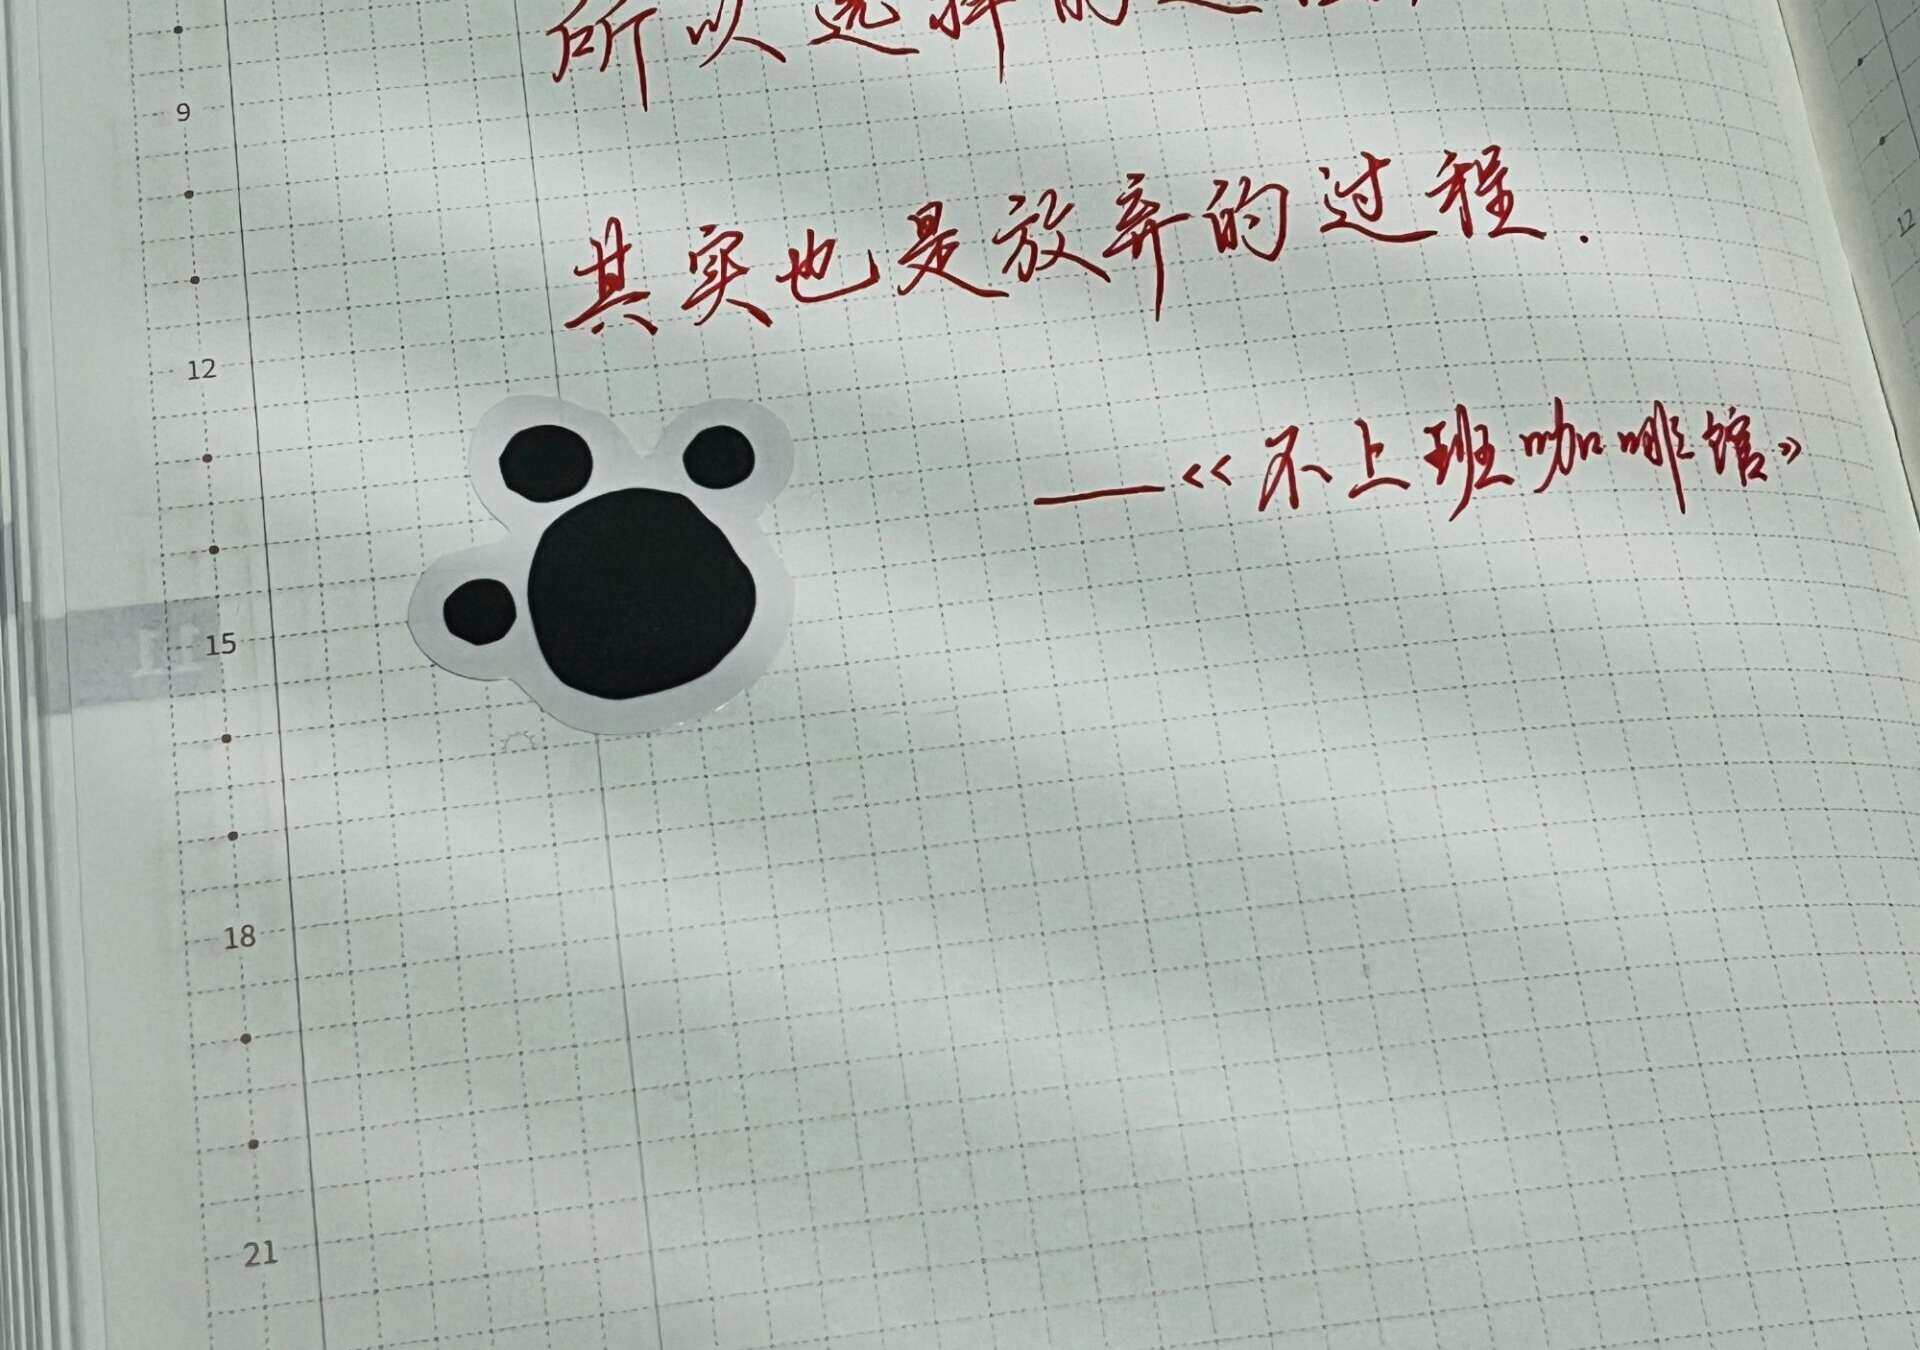 所以选择的过程
9
其实也是放弃的过程.
12
——《不上班咖啡馆》
12
11
15
18
21